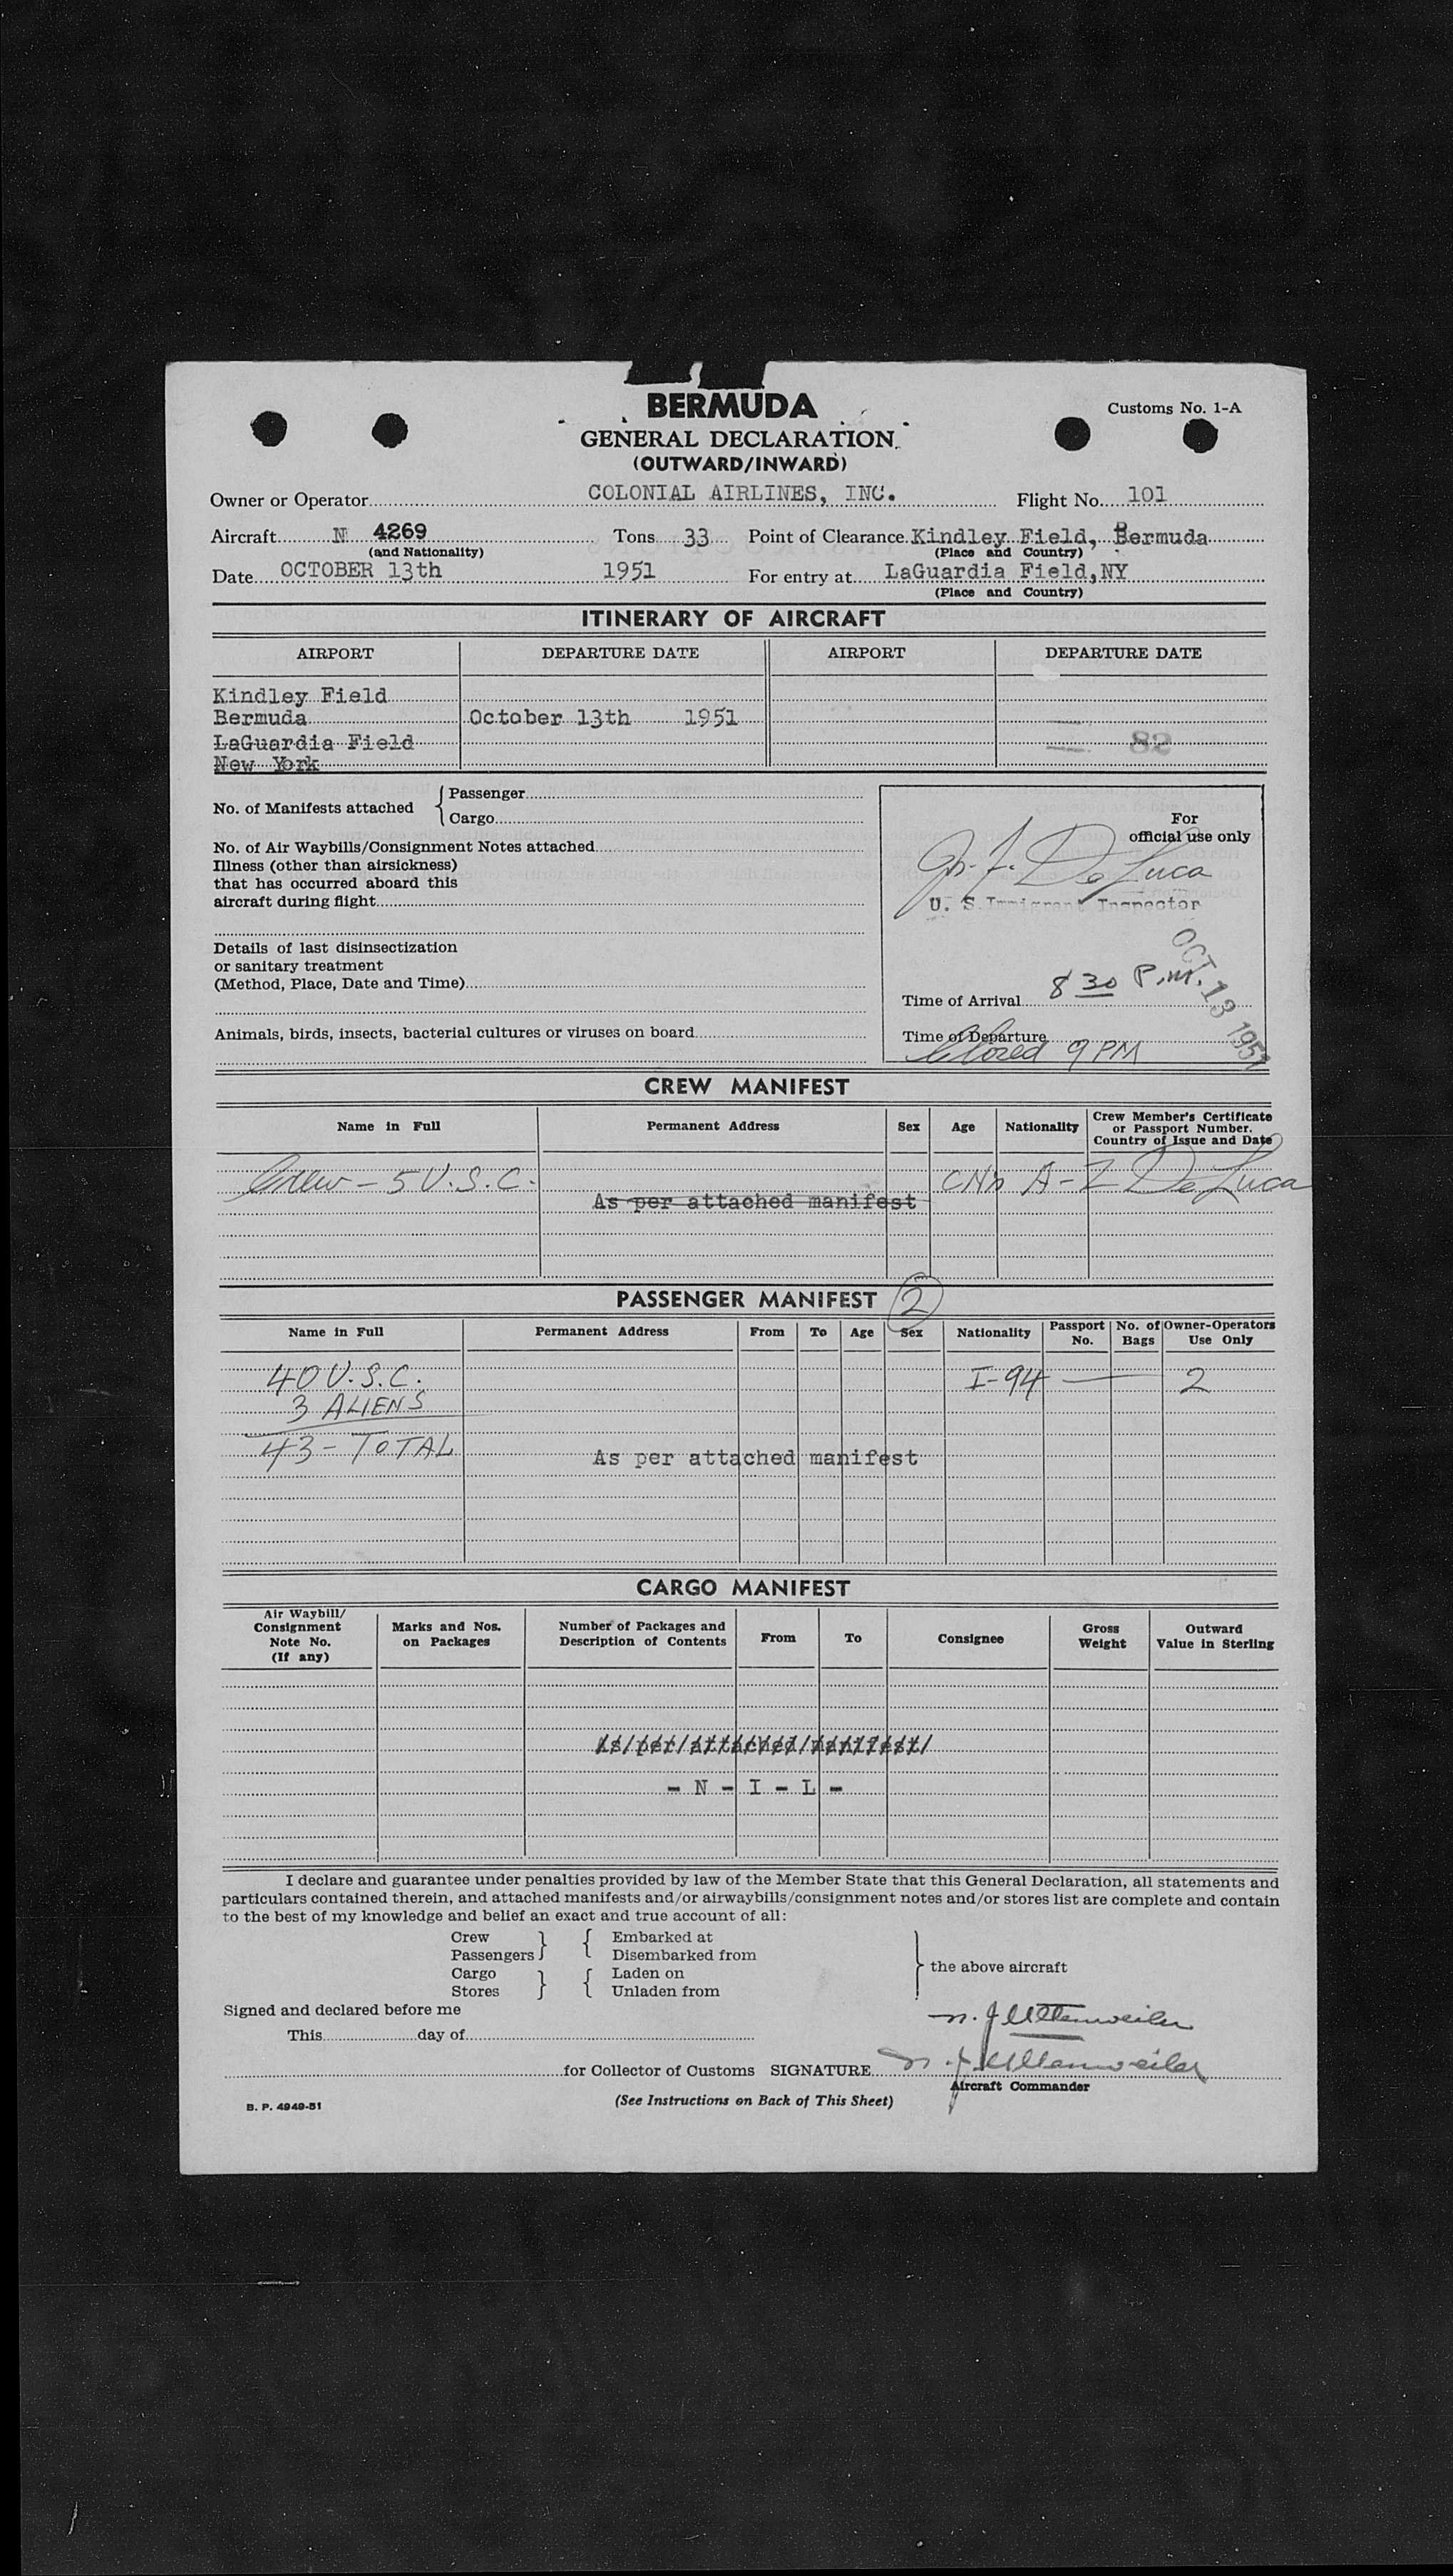 BERMUDA
Customs No. 1-A
GENERAL DECLARATION
(OUTWARD/INWARD)
Owner or Operator COLONIAL AIRLINES, INC. Flight No. 101
Aircraft N 4269 Tons 33 Point of Clearance Kindley Field, Bermuda
(and Nationality) (Place and Country)
Date OCTOBER 13th 1951 For entry at LaGuardia Field, NY
(Place and Country)
ITINERARY OF AIRCRAFT
AIRPORT DEPARTURE DATE AIRPORT DEPARTURE DATE
Kindley Field
Bermuda October 13th 1951
LaGuardia Field 82
New York
No. of Manifests attached { Passenger
Cargo
No. of Air Waybills/Consignment Notes attached
Illness (other than airsickness)
that has occurred aboard this
aircraft during flight
Details of last disinsectization
or sanitary treatment
(Method, Place, Date and Time)
Animals, birds, insects, bacterial cultures or viruses on board
For
official use only
De Luca
U. S. Immigrant Inspector
OCT 13 1951
Time of Arrival 8 30 P.M.
Time of Departure
Closed 9 PM
CREW MANIFEST
Name in Full Permanent Address Sex Age Nationality Crew Member's Certificate
or Passport Number.
Country of Issue and Date
Crew - 5 U.S.C. A-Z De Luca
As per attached manifest
PASSENGER MANIFEST 2
Name in Full Permanent Address From To Age Sex Nationality Passport No. No. of Bags Owner-Operators Use Only
40 U.S.C. I-94 — 2
3 ALIENS
43 - TOTAL
As per attached manifest
CARGO MANIFEST
Air Waybill/
Consignment
Note No.
(If any)
Marks and Nos.
on Packages
Number of Packages and
Description of Contents
From To Consignee
Gross
Weight
Outward
Value in Sterling
As/per/attached/manifest/
- N - I - L -
I declare and guarantee under penalties provided by law of the Member State that this General Declaration, all statements and
particulars contained therein, and attached manifests and/or airwaybills/consignment notes and/or stores list are complete and contain
to the best of my knowledge and belief an exact and true account of all:
Crew } { Embarked at
Passengers Disembarked from
Cargo } { Laden on
Stores Unladen from
} the above aircraft
Signed and declared before me
This day of
for Collector of Customs SIGNATURE
Aircraft Commander
B. P. 4949-51
(See Instructions on Back of This Sheet)